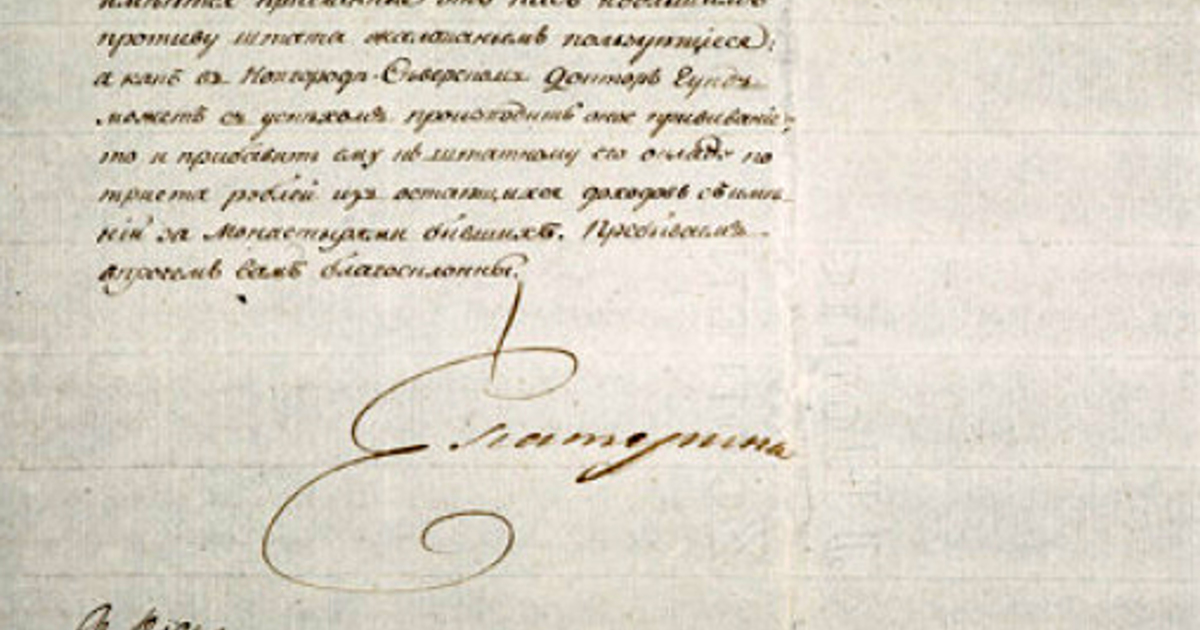 имѣются присланные отъ насъ
противу штата жалованьемъ пользующіеся;
а какъ въ Новгородѣ-Сѣверскомъ Докторъ Гундъ
можетъ съ успѣхомъ произходить оное прививаніе,
то и прибавить ему къ штатному его окладу по
триста рублей изъ остающихся доходовъ съ имѣ-
ній за Монастырями бывшихъ. Пребываемъ
впрочемъ вамъ благосклонны.
Екатерина